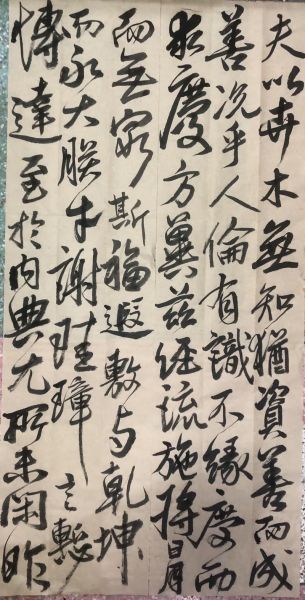 夫以卉木無知猶資善而成
善况乎人倫有識不緣慶而
求慶方冀茲經流施將日月
而無窮斯福遐敷与乾坤
而永大朕才謝珪璋言慙
博達至於内典尤所未閑昨